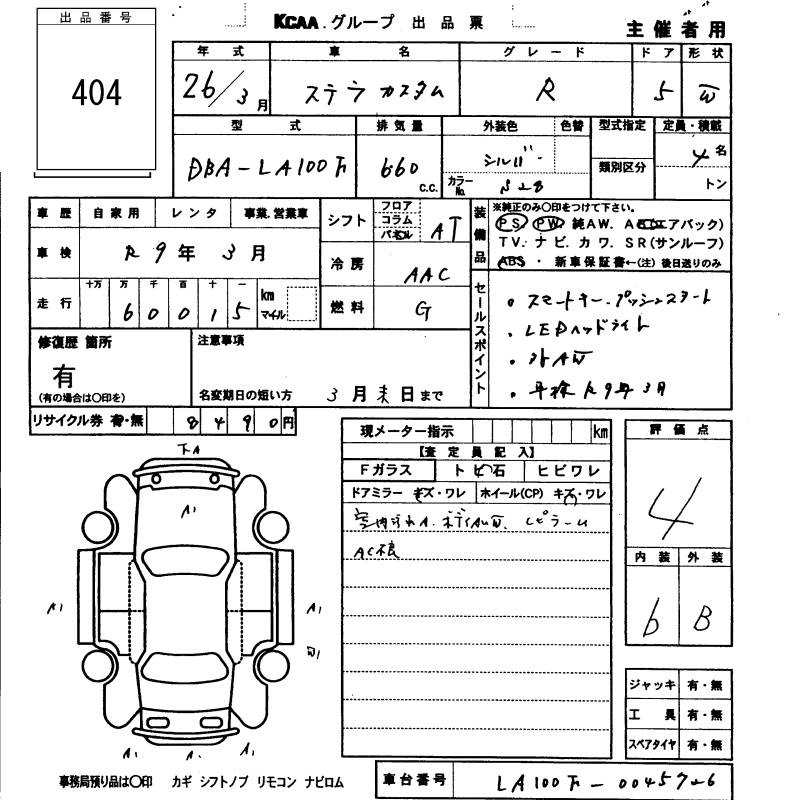 出品番号
404
KCAA.グループ 出品票
主催者用
年式 車名 グレード ドア 形状
26/3月 ステラ カスタム R 5 W
型式 排気量 外装色 色替 型式指定 定員・積載
DBA-LA100F 660 c.c. シルバー 類別区分 4名
カラーNo. S28 トン
車歴 自家用 レンタ 事業.営業車
車検 R9年 3月
走行 十万 万 千 百 十 一 km マイル
6 0 0 1 5
シフト フロア コラム パネル AT
冷房 AAC
燃料 G
装備品
※純正のみ○印をつけて下さい。
PS PW 純AW. A エアバック)
TV. ナビ. カワ. SR(サンルーフ)
ABS ・ 新車保証書←(注) 後日送りのみ
セールスポイント
・スマートキー.プッシュスタート
・LEDヘッドライト
・外AW
・車検R9年3月
修復歴 箇所
有
(有の場合は○印を)
注意事項
名変期日の短い方 3月末日まで
リサイクル券 有・無 8490円
現メーター指示 km
【査定員記入】
Fガラス トビ石 ヒビワレ
ドアミラー キズ・ワレ ホイール(CP) キズ・ワレ
AC不良
評価点
4
内装 外装
6 B
ジャッキ 有・無
工具 有・無
スペアタイヤ 有・無
下A
A1
A1 A1
A1 A1 A1
事務局預り品は○印 カギ シフトノブ リモコン ナビロム
車台番号 LA100F-0045726